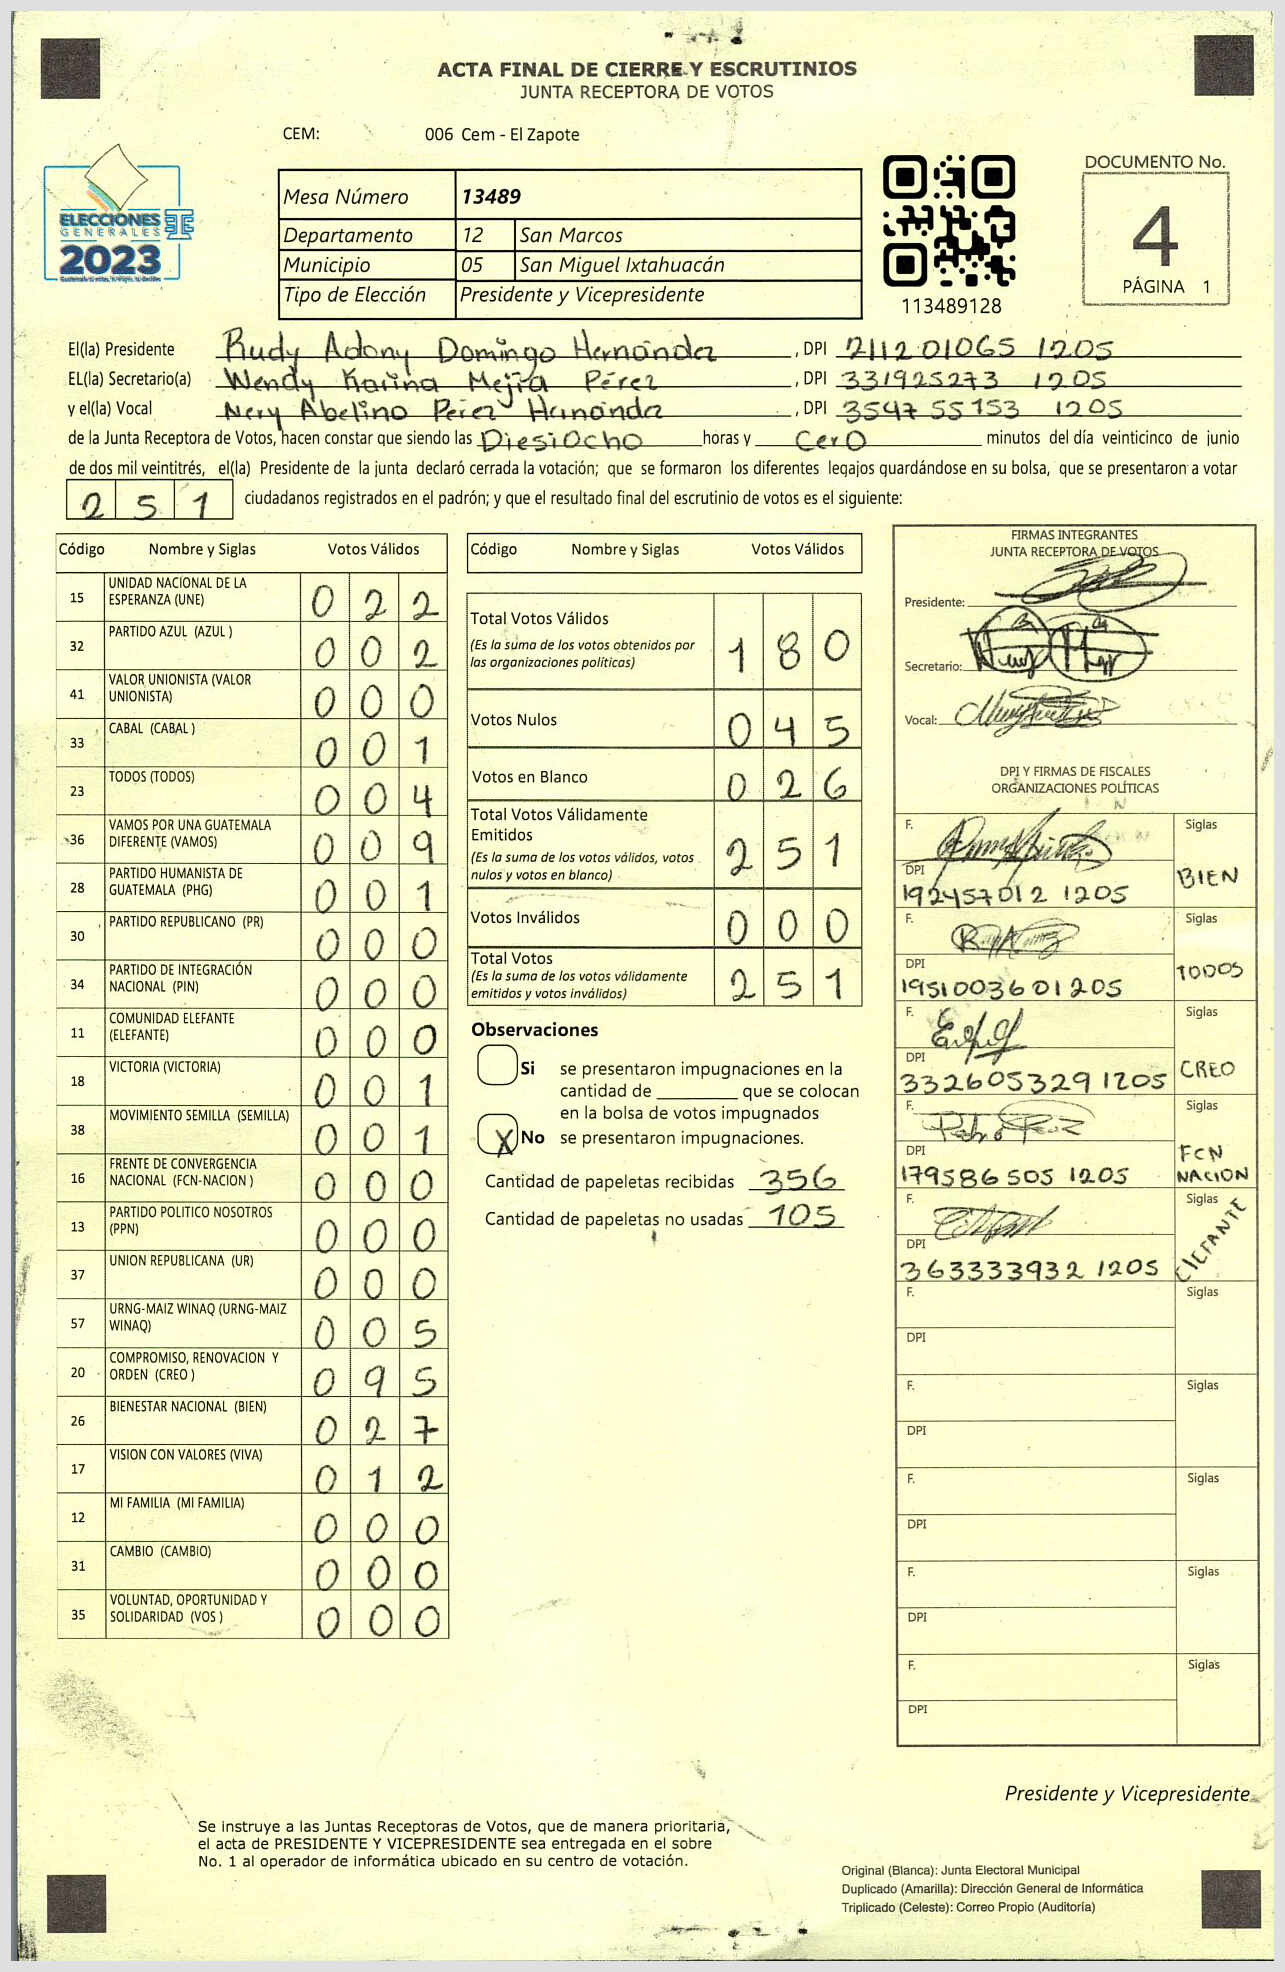 ACTA FINAL DE CIERRE Y ESCRUTINIOS
JUNTA RECEPTORA DE VOTOS
CEM: 006 Cem - El Zapote
ELECCIONES
GENERALES
2023
Mesa Número 13489
Departamento 12 San Marcos
Municipio 05 San Miguel Ixtahuacán
Tipo de Elección Presidente y Vicepresidente
113489128
DOCUMENTO No.
4
PÁGINA 1
El(la) Presidente Rudy Adony Domingo Hernández , DPI 211201065 1205
EL(la) Secretario(a) Wendy Karina Mejía Pérez , DPI 331925273 1205
y el(la) Vocal Nery Abelino Pérez Hernández , DPI 354755153 1205
de la Junta Receptora de Votos, hacen constar que siendo las DiesiOcho horas y CerO minutos del día veinticinco de junio
de dos mil veintitrés, el(la) Presidente de la junta declaró cerrada la votación; que se formaron los diferentes legajos guardándose en su bolsa, que se presentaron a votar
2 5 1 ciudadanos registrados en el padrón; y que el resultado final del escrutinio de votos es el siguiente:
Código Nombre y Siglas Votos Válidos
15 UNIDAD NACIONAL DE LA
ESPERANZA (UNE) 0 2 2
32 PARTIDO AZUL (AZUL ) 0 0 2
41 VALOR UNIONISTA (VALOR
UNIONISTA) 0 0 0
33 CABAL (CABAL ) 0 0 1
23 TODOS (TODOS) 0 0 4
36 VAMOS POR UNA GUATEMALA
DIFERENTE (VAMOS) 0 0 9
28 PARTIDO HUMANISTA DE
GUATEMALA (PHG) 0 0 1
30 PARTIDO REPUBLICANO (PR) 0 0 0
34 PARTIDO DE INTEGRACIÓN
NACIONAL (PIN) 0 0 0
11 COMUNIDAD ELEFANTE
(ELEFANTE) 0 0 0
18 VICTORIA (VICTORIA) 0 0 1
38 MOVIMIENTO SEMILLA (SEMILLA) 0 0 1
16 FRENTE DE CONVERGENCIA
NACIONAL (FCN-NACION ) 0 0 0
13 PARTIDO POLITICO NOSOTROS
(PPN) 0 0 0
37 UNION REPUBLICANA (UR) 0 0 0
57 URNG-MAIZ WINAQ (URNG-MAIZ
WINAQ) 0 0 5
20 COMPROMISO, RENOVACION Y
ORDEN (CREO ) 0 9 5
26 BIENESTAR NACIONAL (BIEN) 0 2 7
17 VISION CON VALORES (VIVA) 0 1 2
12 MI FAMILIA (MI FAMILIA) 0 0 0
31 CAMBIO (CAMBIO) 0 0 0
35 VOLUNTAD, OPORTUNIDAD Y
SOLIDARIDAD (VOS ) 0 0 0
Código Nombre y Siglas Votos Válidos
Total Votos Válidos
(Es la suma de los votos obtenidos por
las organizaciones políticas) 1 8 0
Votos Nulos 0 4 5
Votos en Blanco 0 2 6
Total Votos Válidamente
Emitidos
(Es la suma de los votos válidos, votos
nulos y votos en blanco) 2 5 1
Votos Inválidos 0 0 0
Total Votos
(Es la suma de los votos válidamente
emitidos y votos inválidos) 2 5 1
Observaciones
Si se presentaron impugnaciones en la
cantidad de ________ que se colocan
en la bolsa de votos impugnados
X No se presentaron impugnaciones.
Cantidad de papeletas recibidas 356
Cantidad de papeletas no usadas 105
FIRMAS INTEGRANTES
JUNTA RECEPTORA DE VOTOS
Presidente:
Secretario:
Vocal:
DPI Y FIRMAS DE FISCALES
ORGANIZACIONES POLÍTICAS
F. Siglas
DPI BIEN
192457012 1205
F. Siglas
DPI TODOS
195100360 1205
F. Siglas
DPI CREO
332605329 1205
F. Siglas
DPI FCN
179586505 1205 NACION
F. Siglas
DPI ElEFANTE
363333932 1205
F. Siglas
DPI
F. Siglas
DPI
F. Siglas
DPI
F. Siglas
DPI
F. Siglas
DPI
Presidente y Vicepresidente
Se instruye a las Juntas Receptoras de Votos, que de manera prioritaria,
el acta de PRESIDENTE Y VICEPRESIDENTE sea entregada en el sobre
No. 1 al operador de informática ubicado en su centro de votación.
Original (Blanca): Junta Electoral Municipal
Duplicado (Amarilla): Dirección General de Informática
Triplicado (Celeste): Correo Propio (Auditoría)